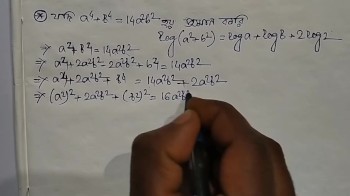 * যদি a⁴ + b⁴ = 14a²b² হয় প্রমাণ করি
log(a²+b²) = log a + log b + 2 log 2
⇒ a⁴ + b⁴ = 14a²b²
⇒ a⁴ + 2a²b² - 2a²b² + b⁴ = 14a²b²
⇒ a⁴ + 2a²b² + b⁴ = 14a²b² + 2a²b²
⇒ (a²)² + 2a²b² + (b²)² = 16a²b²